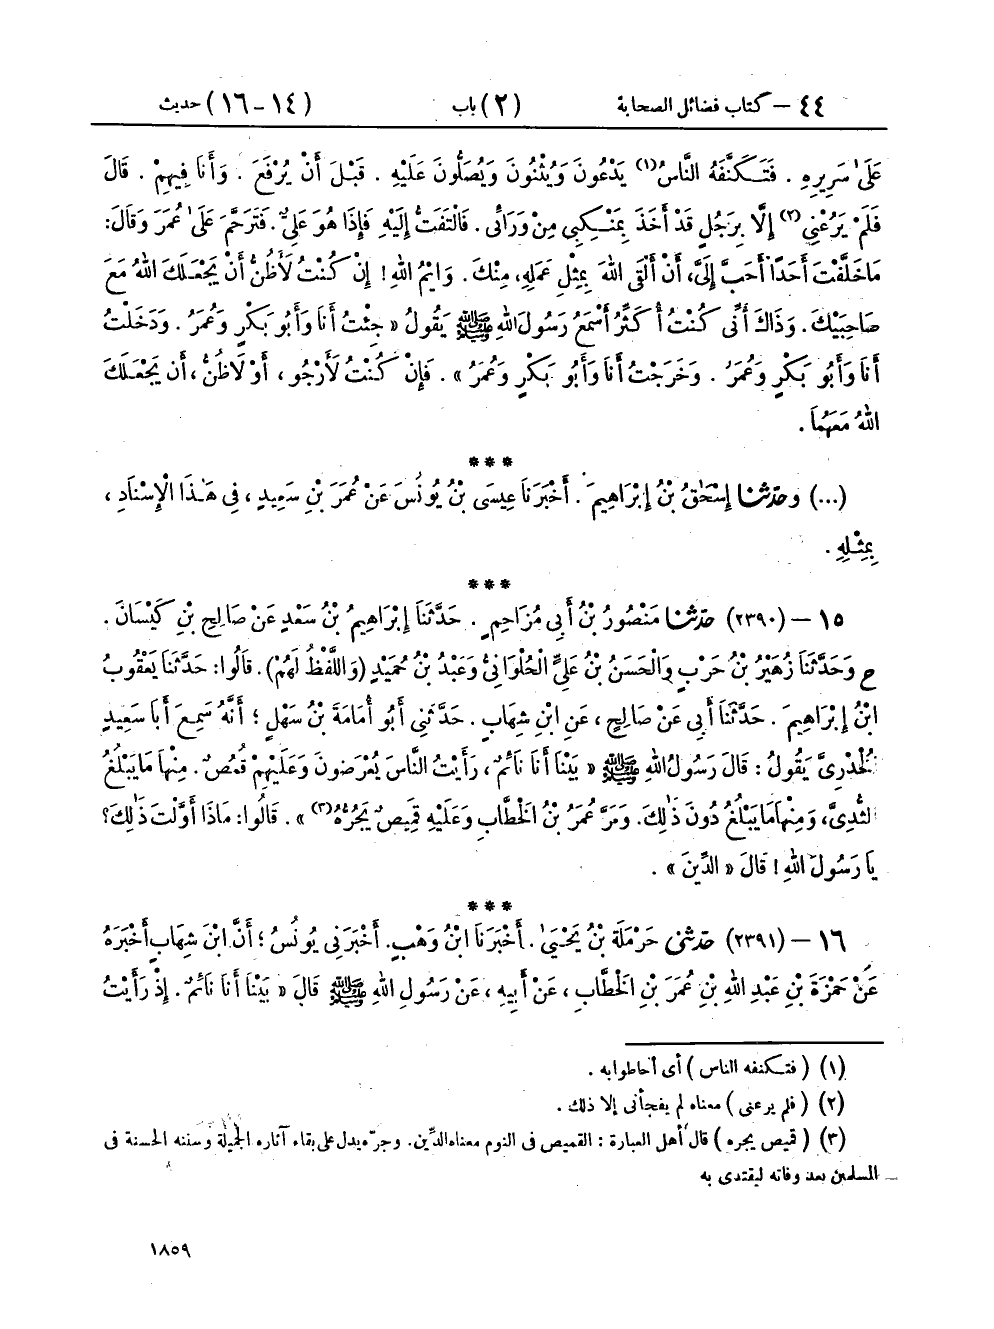 ٤٤ – كتاب فضائل الصحابة (٢) باب (١٤-١٦) حديث
عَلَىٰ سَرِيرِهِ . فَتَكَنَّفَهُ النَّاسُ(١) يَدْعُونَ وَيُثْنُونَ وَيُصَلُّونَ عَلَيْهِ . قَبْلَ أَنْ يُرْفَعَ . وَأَنَا فِيهِمْ . قَالَ
فَلَمْ يَرُعْنِي(٢) إِلَّا بِرَجُلٍ قَدْ أَخَذَ بِمَنْكِبِي مِنْ وَرَائِي . فَالْتَفَتُّ إِلَيْهِ فَإِذَا هُوَ عَلِيٌّ . فَتَرَحَّمَ عَلَىٰ عُمَرَ وَقَالَ:
مَا خَلَّفْتَ أَحَدًا أَحَبَّ إِلَيَّ، أَنْ أَلْقَى اللهَ بِمِثْلِ عَمَلِهِ، مِنْكَ . وَايْمُ اللهِ ! إِنْ كُنْتُ لَأَظُنُّ أَنْ يَجْعَلَكَ اللهُ مَعَ
صَاحِبَيْكَ . وَذَاكَ أَنِّي كُنْتُ أُكَثِّرُ أَسْمَعُ رَسُولَ اللهِ ﷺ يَقُولُ « جِئْتُ أَنَا وَأَبُو بَكْرٍ وَعُمَرُ . وَدَخَلْتُ
أَنَا وَأَبُو بَكْرٍ وَعُمَرُ . وَخَرَجْتُ أَنَا وَأَبُو بَكْرٍ وَعُمَرُ » . فَإِنْ كُنْتُ لَأَرْجُو ، أَوْ لَأَظُنُّ ، أَنْ يَجْعَلَكَ
اللهُ مَعَهُمَا .
***
(...) وحدثنا إِسْحَٰقُ بْنُ إِبْرَاهِيمَ . أَخْبَرَنَا عِيسَى بْنُ يُونُسَ عَنْ عُمَرَ بْنِ سَعِيدٍ ، فِي هَٰذَا الْإِسْنَادِ ،
بِمِثْلِهِ .
***
١٥ – (٢٣٩٠) حدثنا مَنْصُورُ بْنُ أَبِي مُزَاحِمٍ . حَدَّثَنَا إِبْرَاهِيمُ بْنُ سَعْدٍ عَنْ صَالِحِ بْنِ كَيْسَانَ .
ح وَحَدَّثَنَا زُهَيْرُ بْنُ حَرْبٍ وَالْحَسَنُ بْنُ عَلِيٍّ الْحُلْوَانِيُّ وَعَبْدُ بْنُ حُمَيْدٍ (وَاللَّفْظُ لَهُمْ) . قَالُوا : حَدَّثَنَا يَعْقُوبُ
ابْنُ إِبْرَاهِيمَ . حَدَّثَنَا أَبِي عَنْ صَالِحٍ ، عَنِ ابْنِ شِهَابٍ . حَدَّثَنِي أَبُو أُمَامَةَ بْنُ سَهْلٍ ؛ أَنَّهُ سَمِعَ أَبَا سَعِيدٍ
الْخُدْرِيَّ يَقُولُ : قَالَ رَسُولُ اللهِ ﷺ « بَيْنَا أَنَا نَائِمٌ ، رَأَيْتُ النَّاسَ يُعْرَضُونَ وَعَلَيْهِمْ قُمُصٌ . مِنْهَا مَا يَبْلُغُ
الثُّدِيَّ ، وَمِنْهَا مَا يَبْلُغُ دُونَ ذَٰلِكَ . وَمَرَّ عُمَرُ بْنُ الْخَطَّابِ وَعَلَيْهِ قَمِيصٌ يَجُرُّهُ(٣) » . قَالُوا : مَاذَا أَوَّلْتَ ذَٰلِكَ؟
يَا رَسُولَ اللهِ ! قَالَ « الدِّينَ » .
***
١٦ – (٢٣٩١) حدثني حَرْمَلَةُ بْنُ يَحْيَىٰ . أَخْبَرَنَا ابْنُ وَهْبٍ . أَخْبَرَنِي يُونُسُ ؛ أَنَّ ابْنَ شِهَابٍ أَخْبَرَهُ
عَنْ حَمْزَةَ بْنِ عَبْدِ اللهِ بْنِ عُمَرَ بْنِ الْخَطَّابِ ، عَنْ أَبِيهِ ، عَنْ رَسُولِ اللهِ ﷺ قَالَ « بَيْنَا أَنَا نَائِمٌ . إِذْ رَأَيْتُ
(١) ( فتكنفه الناس ) أى أحاطوا به .
(٢) ( فلم يرعنى ) معناه لم يفجأنى إلا ذلك .
(٣) ( قميص يجره ) قال أهل العبارة : القميص فى النوم معناه الدِّين . وجرّه يدل على بقاء آثاره الجميلة وسننه الحسنة فى
المسلمين بعد وفاته ليقتدى به
١٨٥٩